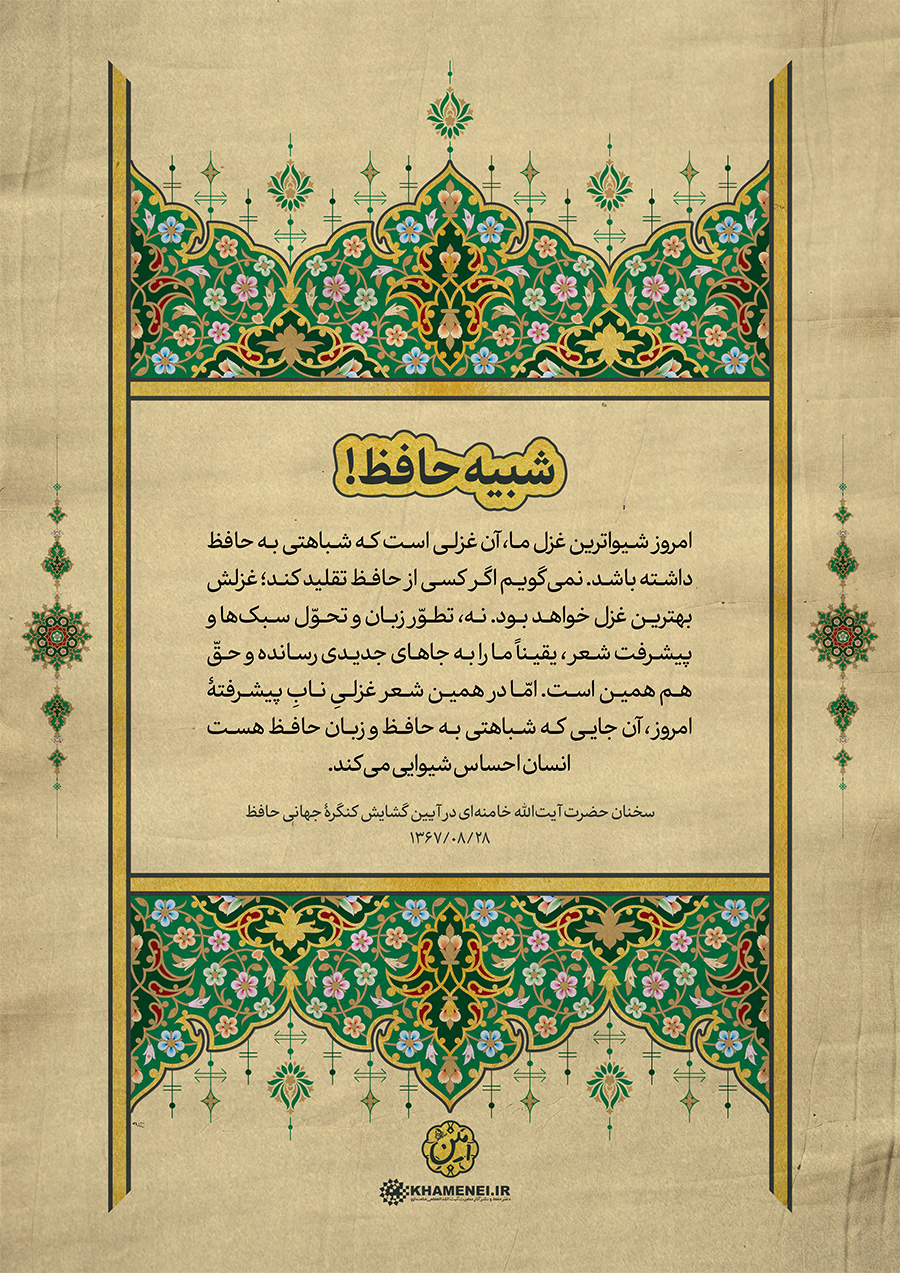 شبیه حافظ!
امروز شیواترین غزل ما، آن غزلی است که شباهتی به حافظ
داشته باشد. نمی‌گویم اگر کسی از حافظ تقلید کند؛ غزلش
بهترین غزل خواهد بود. نه، تطوّر زبان و تحوّل سبک‌ها و
پیشرفت شعر، یقیناً ما را به جاهای جدیدی رسانده و حقّ
هم همین است. امّا در همین شعر غزلیِ نابِ پیشرفتهٔ
امروز، آن جایی که شباهتی به حافظ و زبان حافظ هست
انسان احساس شیوایی می‌کند.
سخنان حضرت آیت‌الله خامنه‌ای در آیین گشایش کنگرهٔ جهانی حافظ
۱۳۶۷/۰۸/۲۸
KHAMENEI.IR
دفتر حفظ و نشر آثار حضرت آیت‌الله العظمی خامنه‌ای